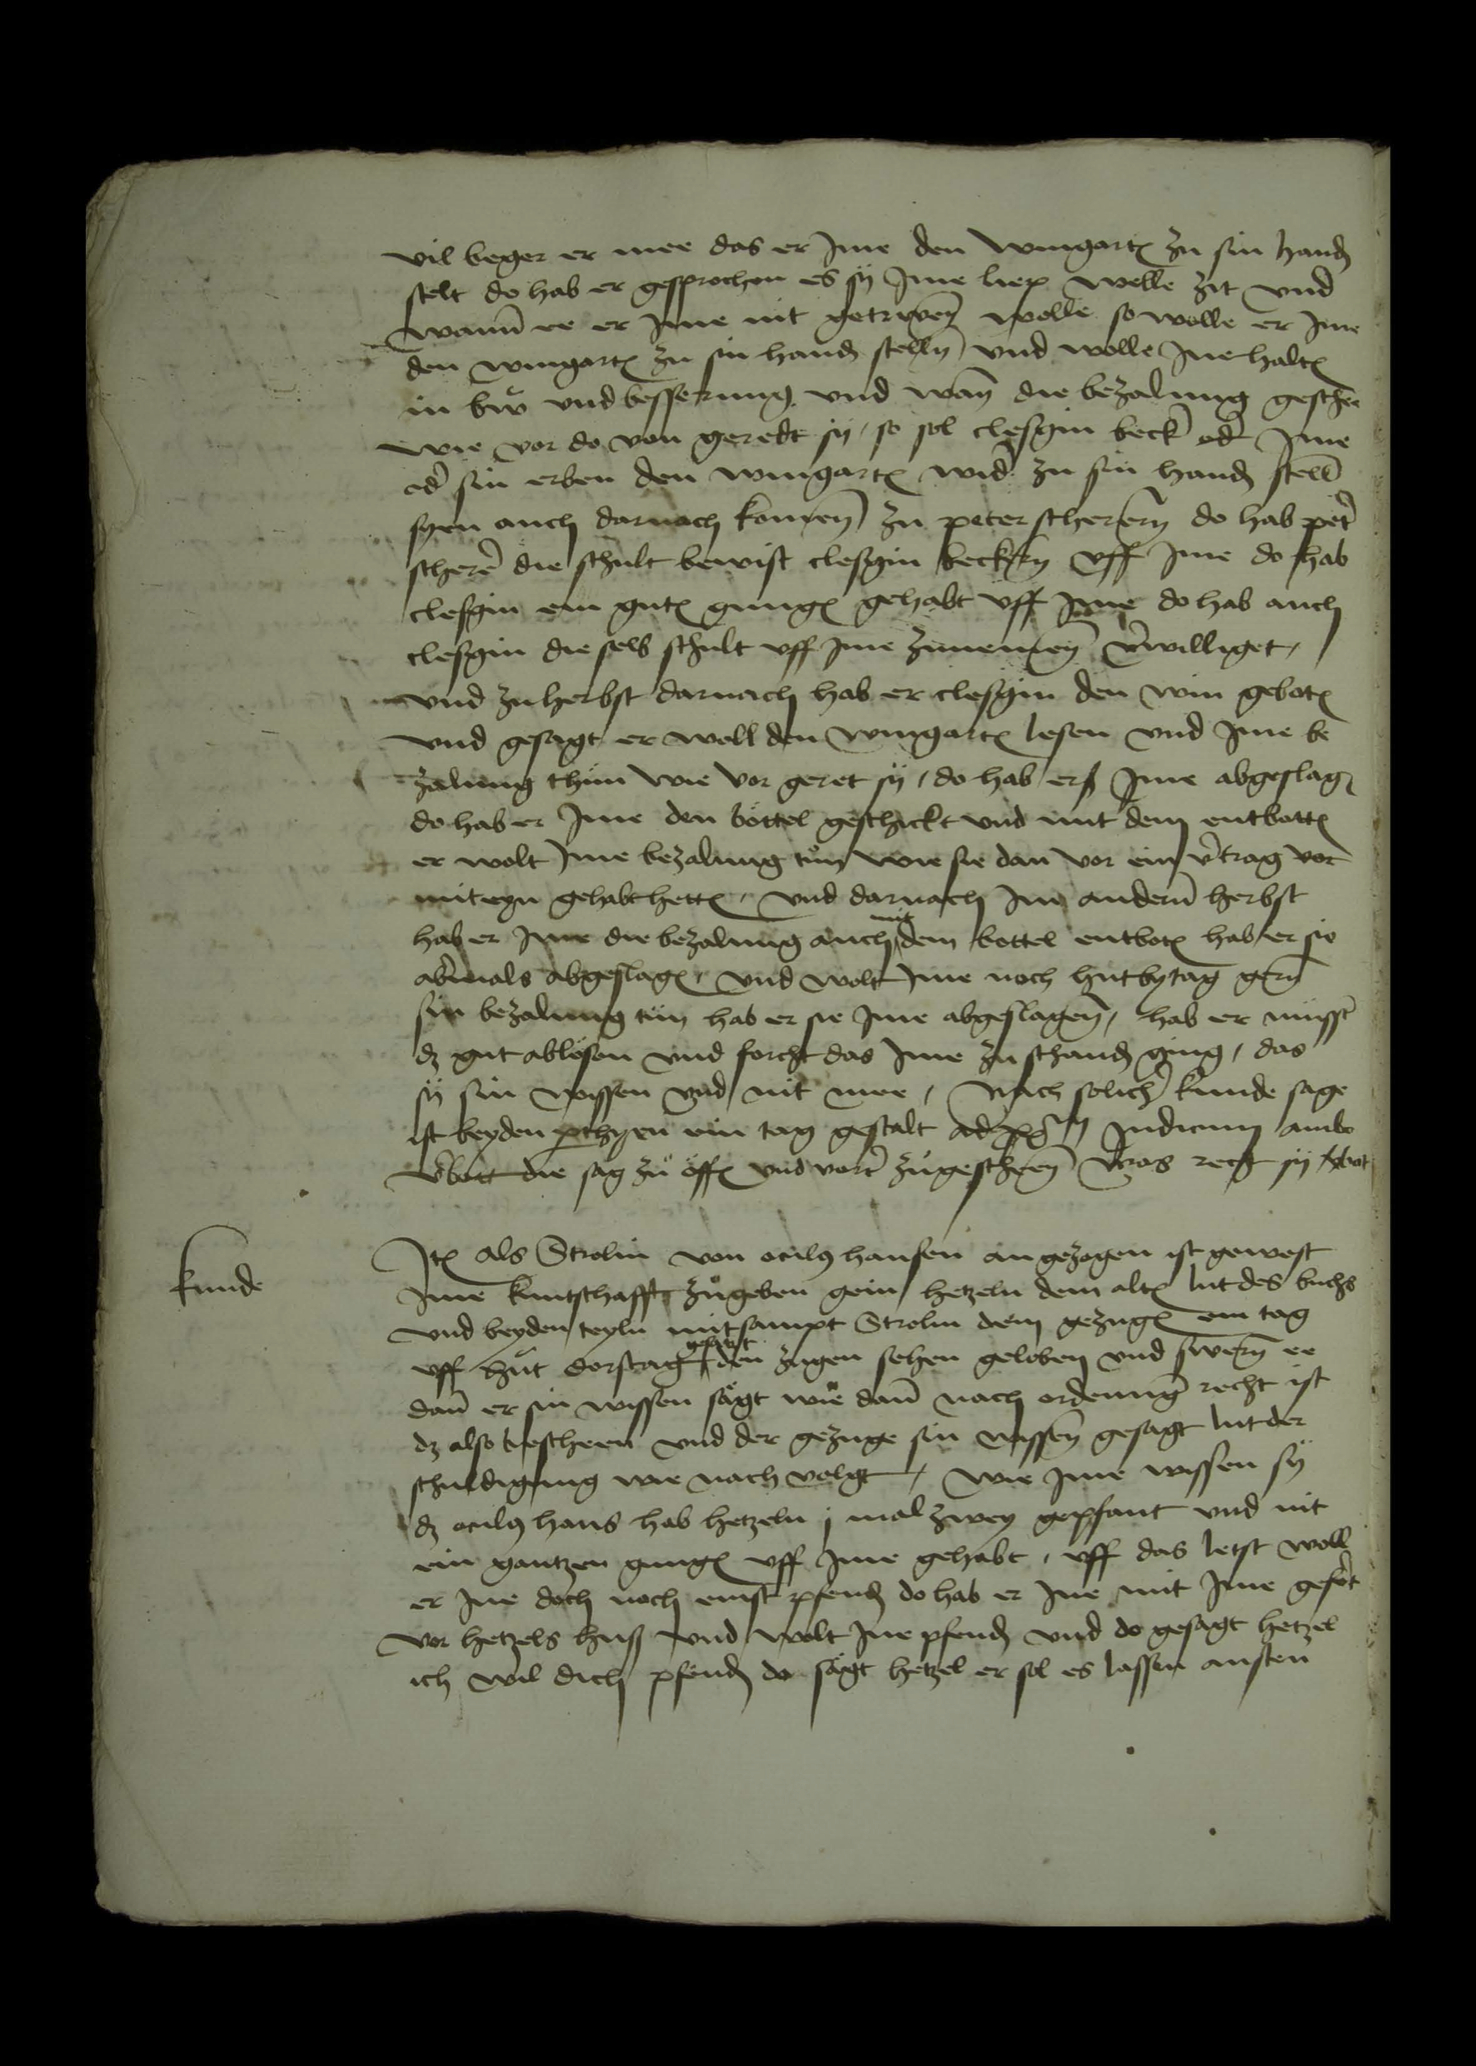 vil beger er mee das er Ime den wingartꝭ zu sin handꝭ
stelt do hab er gesprochen es sÿ Ime liep welle zit vnd
wann̄ ee er Ime nit getruwen̄ wolle so wolle er Ime
den wingartꝭ zu sin handꝭ stelln vnd wolle Ine haltꝭ
in buw vnd besserung vnd wan̄ die bezalung geschee
wie vor do von geredt sy / so sol clesgin beck̄ od̄ Ime
od̄ sin erben den wingartꝭ wid̄ zu sin handꝭ stell̄
syen auch darnach komen̄ zu peter scherern do hab pet̄
scherē die schult bewist clesgin beckern vff Ime do hab
clesgin ein gutꝭ gnugꝭ gehabt vff Ime do hab auch
clesgin die selb schult vff Ime zunemen̄ v̄williget /
vnd zu herbst darnach hab er clesgin den win gebotꝭ
vnd gesagt er woll den wingartꝭ lesen vnd Ime be
zalung thun wie vor geret sÿ / do hab erß Ime abgeslagꝭ
do hab er Ime den böttel geschickt vnd mit dem entbottꝭ
er wolt Ime bezalung tun wie sie dan vor ein v̄trag vor
mit eyn gehabt hettꝭ / vnd darnach Im andern̄ herbst
hab er Ime die bezalung auch mit dem bottel entbotꝭ hab er sie
ab̄mals abgeslagꝭ / vnd wolt Ime noch hutbytag gern̄
sin bezalung tun hab er sie Ime abgeslagen̄ / hab er müsst̄
dz gut ablösen vnd forcht das Ime zu schandꝭ ging / das
sÿ sin wissen vnd nit mee / Nach solich̄ kunde sage
ist beyden ꝑthyen ein tag gestalt ad Iudicium ambo
v̄bott die sag zu öffꝭ vnd vort̄ zugescheen̄ was recht sÿ
Itꝭ als Strolin von ocilꝰ hansen angezogen ist gewest
Ime kuntschafft zugeben gein hetzeln dem altꝭ lut des buchs
vnd beyden teyln mit sampt Strolin dem gezugꝭ ein tag
vff hut dorstag gesatzt den zugen sehen geloben vnd swern̄ ee
dan̄ er sin wissen sagt wie dan̄ nach ordenung recht ist
dz also bescheen vnd der gezuge sin wissen̄ gesagt lut der
schuldigung wie nach volgt / wie Ime wissen sÿ
dz ocilꝰ hans hab hetzeln j mal zwey gepfant vnd nit
ein gantzen gnugꝭ vff Ime gehabt / vff das letst woll
er Ine doch noch einst pfendꝭ do hab er Ine mit Ime gefort
vor hetzels huß vnd wolt Ine pfendꝭ vnd do gesagt hetzel
ich wil dich pfendꝭ do sagt hetzel er sol es lassen ansten
kunde